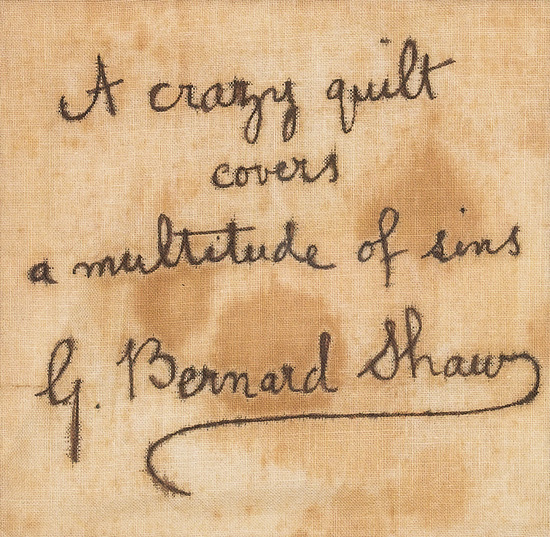 A crazy quilt
covers
a multitude of sins
G. Bernard Shaw